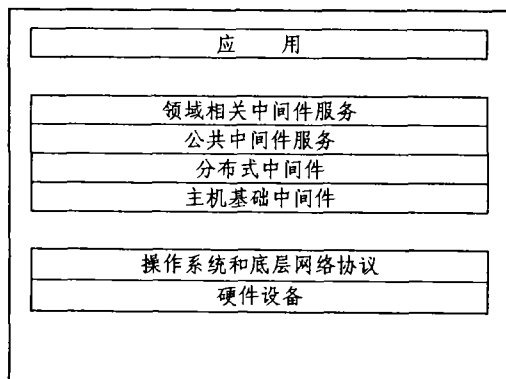 应 用
领域相关中间件服务
公共中间件服务
分布式中间件
主机基础中间件
操作系统和底层网络协议
硬件设备